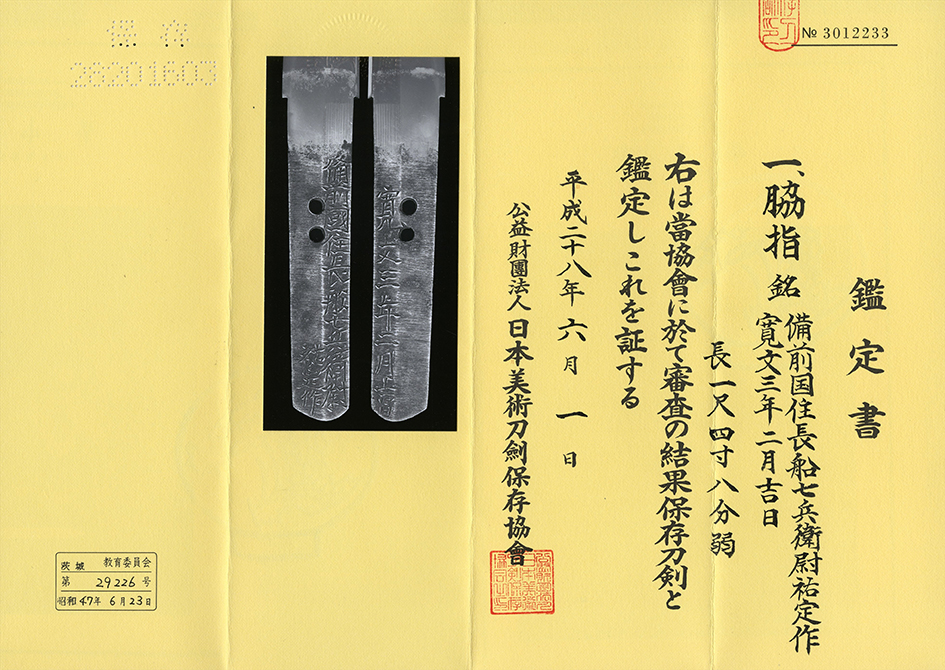 № 3012233
鑑定書
一、脇指 銘 備前国住長船七兵衛尉祐定作
寛文三年二月吉日
長一尺四寸八分弱
右は當協會に於て審査の結果保存刀剣と
鑑定しこれを証する
平成二十八年 六月 一日
公益財團法人 日本美術刀劍保存協會
保存
28201603
茨城 教育委員会
第 29226 号
昭和47年 6月23日